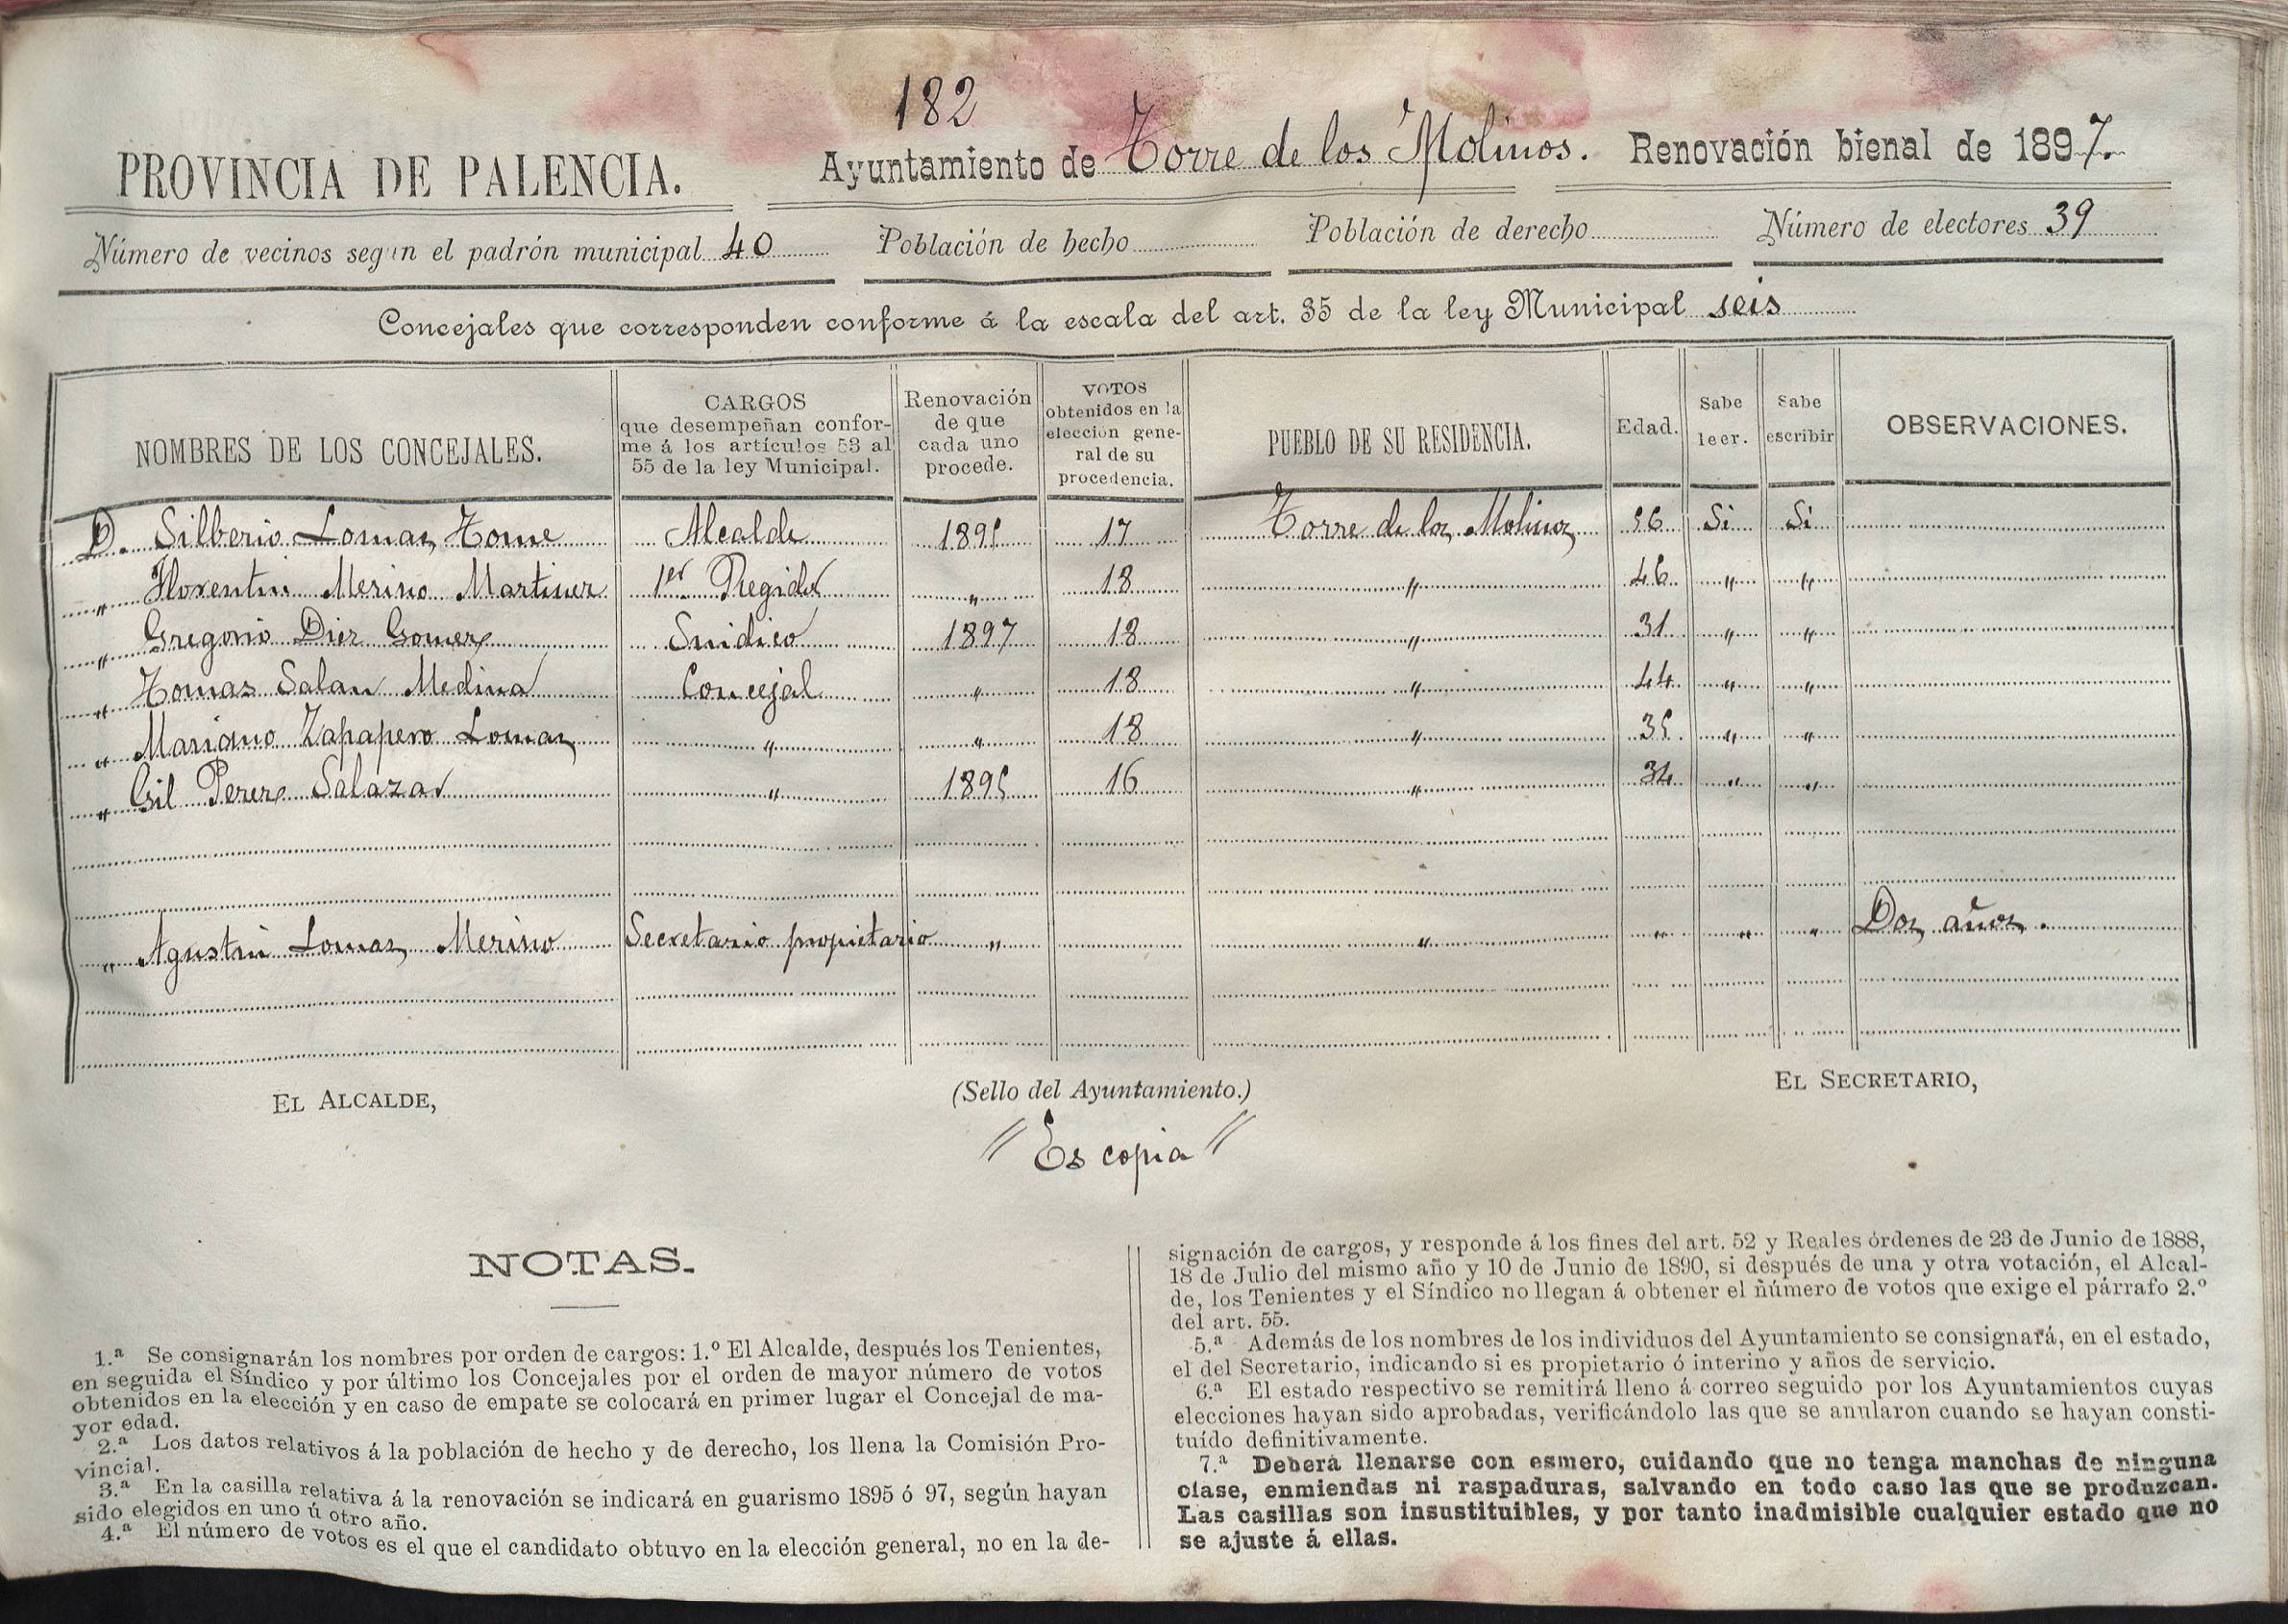 182
PROVINCIA DE PALENCIA. Ayuntamiento de Torre de los Molinos. Renovación bienal de 1897.
Número de vecinos según el padrón municipal 40 Población de hecho Población de derecho Número de electores 39
Concejales que corresponden conforme á la escala del art. 35 de la ley Municipal seis
NOMBRES DE LOS CONCEJALES. CARGOS que desempeñan conforme á los artículos 53 al 55 de la ley Municipal. Renovación de que cada uno procede. VOTOS obtenidos en la elección general de su procedencia. PUEBLO DE SU RESIDENCIA. Edad. Sabe leer. Sabe escribir OBSERVACIONES.
D. Silberio Lomas Tome Alcalde 1895 17 Torre de los Molinos 56 Si Si
" Florentin Merino Martinez 1er Regidor " 18 " 46 " "
" Gregorio Diez Gomez Sindico 1897 18 " 31 " "
" Tomas Salan Medina Concejal " 18 " 44 " "
" Mariano Zapapero Lomas " " 18 " 35 " "
" Gil Perez Salazar " 1895 16 " 34 " "
" Agustin Lomas Merino Secretario propietario " " " " " Dos años.
EL ALCALDE, (Sello del Ayuntamiento.) EL SECRETARIO,
" Es copia "
NOTAS.
1.ª Se consignarán los nombres por orden de cargos: 1.º El Alcalde, después los Tenientes,
en seguida el Síndico y por último los Concejales por el orden de mayor número de votos
obtenidos en la elección y en caso de empate se colocará en primer lugar el Concejal de ma-
yor edad.
2.ª Los datos relativos á la población de hecho y de derecho, los llena la Comisión Pro-
vincial.
3.ª En la casilla relativa á la renovación se indicará en guarismo 1895 ó 97, según hayan
sido elegidos en uno ú otro año.
4.ª El número de votos es el que el candidato obtuvo en la elección general, no en la de-
signación de cargos, y responde á los fines del art. 52 y Reales órdenes de 23 de Junio de 1888,
18 de Julio del mismo año y 10 de Junio de 1890, si después de una y otra votación, el Alcal-
de, los Tenientes y el Síndico no llegan á obtener el número de votos que exige el párrafo 2.º
del art. 55.
5.ª Además de los nombres de los individuos del Ayuntamiento se consignará, en el estado,
el del Secretario, indicando si es propietario ó interino y años de servicio.
6.ª El estado respectivo se remitirá lleno á correo seguido por los Ayuntamientos cuyas
elecciones hayan sido aprobadas, verificándolo las que se anularon cuando se hayan consti-
tuído definitivamente.
7.ª Deberá llenarse con esmero, cuidando que no tenga manchas de ninguna
clase, enmiendas ni raspaduras, salvando en todo caso las que se produzcan.
Las casillas son insustituibles, y por tanto inadmisible cualquier estado que no
se ajuste á ellas.